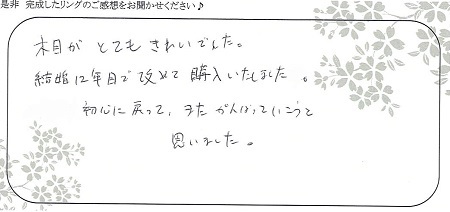 是非 完成したリングのご感想をお聞かせください♪
木目が とても きれいでした。
結婚12年目で 改めて 購入いたしました。
初心に戻って、また がんばっていこうと
思いました。